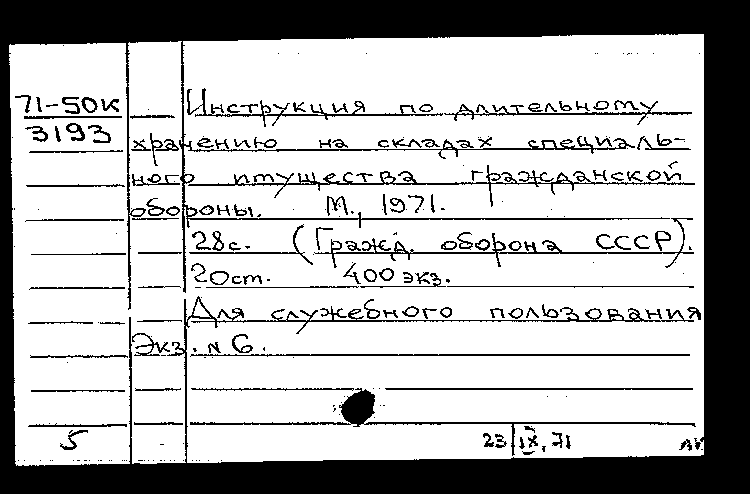 71-50к
3193
Инструкция по длительному
хранению на складах специаль-
ного имущества гражданской
обороны. М., 1971.
28с. (Гражд. оборона СССР).
20ст. 400 экз.
Для служебного пользования
Экз. № 6.
5
23/IX, 71